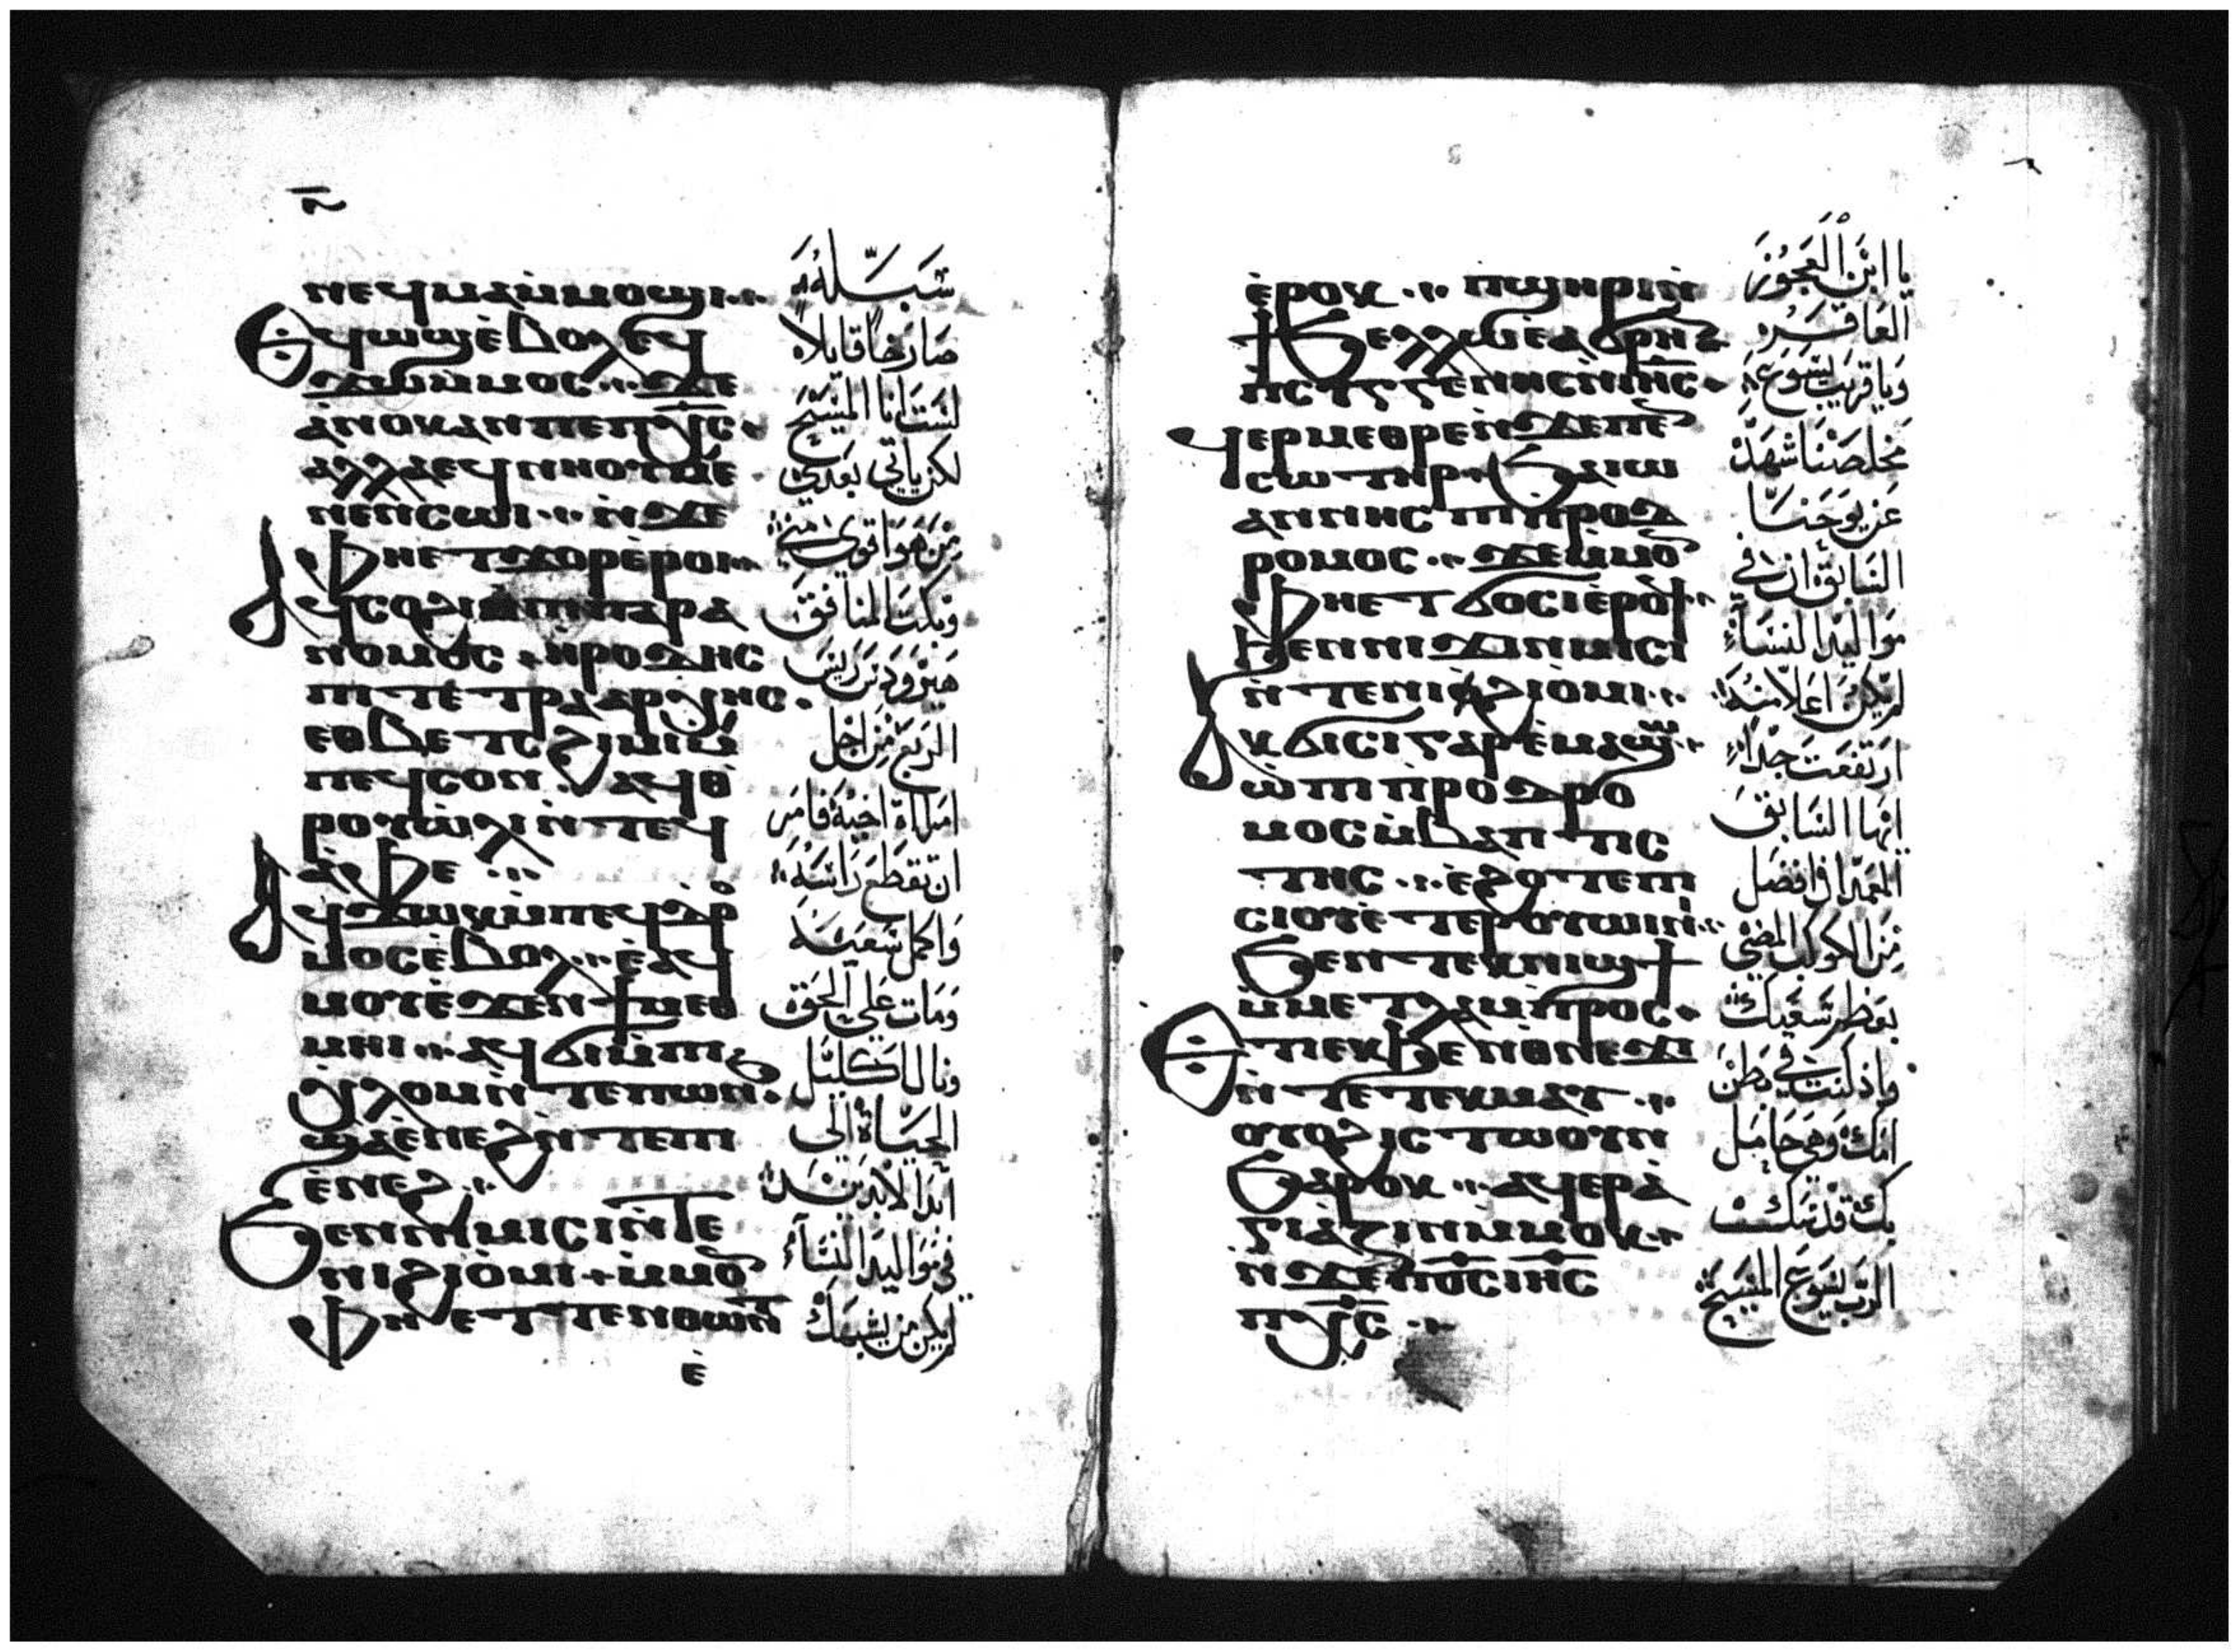 ⲛⲉϥⲙⲁⲛ̀ⲙⲟϣⲓ
Ⲉϥⲱϣ ⲉ̀ⲃⲟⲗ ⲉϥ
ϫⲱ ⲙ̀ⲙⲟⲥ ϫⲉ
ⲁ̀ⲛⲟⲕ ⲁⲛ ⲡⲉ ⲡⲭ̅ⲥ̅
ⲁⲗⲗⲁ ⲉϥⲛⲏⲟⲩ ⲙⲉ
ⲛⲉⲛⲥⲱⲓ ⲛ̀ϫⲉ
ⲫⲏⲉⲧϫⲟⲣ ⲉ̀ⲣⲟⲓ
Ⲁϥⲥⲟϩⲓ ⲙ̀ⲡⲓⲡⲁⲣⲁ
ⲛⲟⲙⲟⲥ ⲏⲣⲟⲇⲏⲥ
ⲡⲓⲧⲉⲧⲣⲁⲁⲣⲭⲏⲥ
ⲉⲑⲃⲉ ⲧⲥϩⲓⲙⲓ ⲙ̀
ⲡⲉϥⲥⲟⲛ ⲁϥⲑ
ⲣⲟⲩⲱ̀ⲗⲓ ⲛ̀ⲧⲉϥ
ⲁ̀ⲫⲉ
Ⲁϥϫⲱⲕ ⲙ̀ⲡⲉϥⲇⲣⲟ
ⲙⲟⲥ ⲉ̀ⲃⲟⲗ ⲉ̀ⲁϥ
ⲙⲟⲩ ⲉ̀ϫⲉⲛ ϯⲙⲉⲑ
ⲙⲏⲓ ⲁϥϭⲓ ⲙ̀ⲡⲓ
ⲭⲗⲟⲙ ⲛ̀ⲧⲉ ⲡⲱⲛϧ
ϣⲁ ⲉ̀ⲛⲉϩ ⲛ̀ⲧⲉ ⲡⲓ
ⲉ̀ⲛⲉϩ
Ϧⲉⲛ ⲛⲓⲙⲓⲥⲓ ⲛ̀ⲧⲉ
ⲛⲓϩⲓⲟ̀ⲙⲓ ⲙ̀ⲙⲟⲛ
ⲫⲏⲉⲧⲧⲉⲛⲑⲱⲛⲧ
ⲉ̀
شبله
صارخا قايلا
لست انا المسيح
لكن ياتي بعدي
من هو اقوى مني
وبكت المنافق
هيرودس ريس
الربع من اجل
امراة اخيه فامر
ان تقطع راسه
واكمل سعيه
ومات على الحق
ونال اكليل
الحياة الى
ابد الابدين
في مواليد النساء
لم يكن من يشبهك
ⲉ̀ⲣⲟⲕ ⲡϣⲏⲣⲓ ⲛ̀
ϯϧⲉⲗⲗⲱ ⲉ̀ⲁϭⲣⲏⲛ
ⲡⲥⲩⲅⲅⲉⲛⲏⲥ ⲛ̀ⲓⲏ̅ⲥ̅
ϥⲉⲣⲙⲉⲑⲣⲉ ⲛ̀ϫⲉ ⲡⲉⲛ
ⲥⲱⲧⲏⲣ ϧⲁ ⲓⲱ
ⲁⲛⲛⲏⲥ ⲡⲓⲡⲣⲟⲇ
ⲣⲟⲙⲟⲥ ϫⲉ ⲙ̀ⲙⲟⲛ
ⲫⲏⲉⲧϭⲟⲥⲓ ⲉ̀ⲣⲟϥ
ϧⲉⲛ ⲛⲓϫⲓⲛⲙⲓⲥⲓ
ⲛ̀ⲧⲉ ⲛⲓϩⲓⲟⲙⲓ
Ⲁⲕϭⲓⲥⲓ ⲅⲁⲣ ⲉ̀ⲙⲁϣⲱ
ⲱ̀ ⲡⲓⲡⲣⲟⲇⲣⲟ
ⲙⲟⲥ ⲙ̀ⲃⲁⲡⲧⲓⲥ
ⲧⲏⲥ ⲉ̀ϩⲟⲧⲉ ⲡⲓ
ⲥⲓⲟⲩ ⲉ̀ⲧⲉⲣⲟⲩⲱⲓⲛⲓ
ϧⲉⲛ ⲧⲉⲕⲛⲓϣϯ
ⲙ̀ⲙⲉⲧⲗⲁⲙⲡⲣⲟⲥ
Ⲉⲧⲓ ⲉⲕϧⲉⲛ ⲑⲛⲉϫⲓ
ⲛ̀ⲧⲉ ⲧⲉⲕⲙⲁⲩ
ⲟⲩⲟϩ ⲓⲥ ⲧⲱⲟⲩⲛ
ϧⲁⲣⲟⲕ ⲁϥⲉⲣⲁ̀
ⲅⲓⲁⲍⲓⲛ ⲙ̀ⲙⲟⲕ
ⲛ̀ϫⲉ ⲡⲟ̅ⲥ̅ ⲓⲏ̅ⲥ̅
ⲡⲭ̅ⲥ̅
يا ابن العجوز
العاقره
ويا قريب يسوع
مخلصنا شهد
عن يوحنا
السابق ان في
مواليد النساء
لم يكن اعلا منه
ارتفعت جدا
ايها السابق
المعمدان افضل
من الكوكب المضي
بعظم سعيك
واذ كنت في بطن
امك وهي حامل
بك قدسك
الرب يسوع المسيح